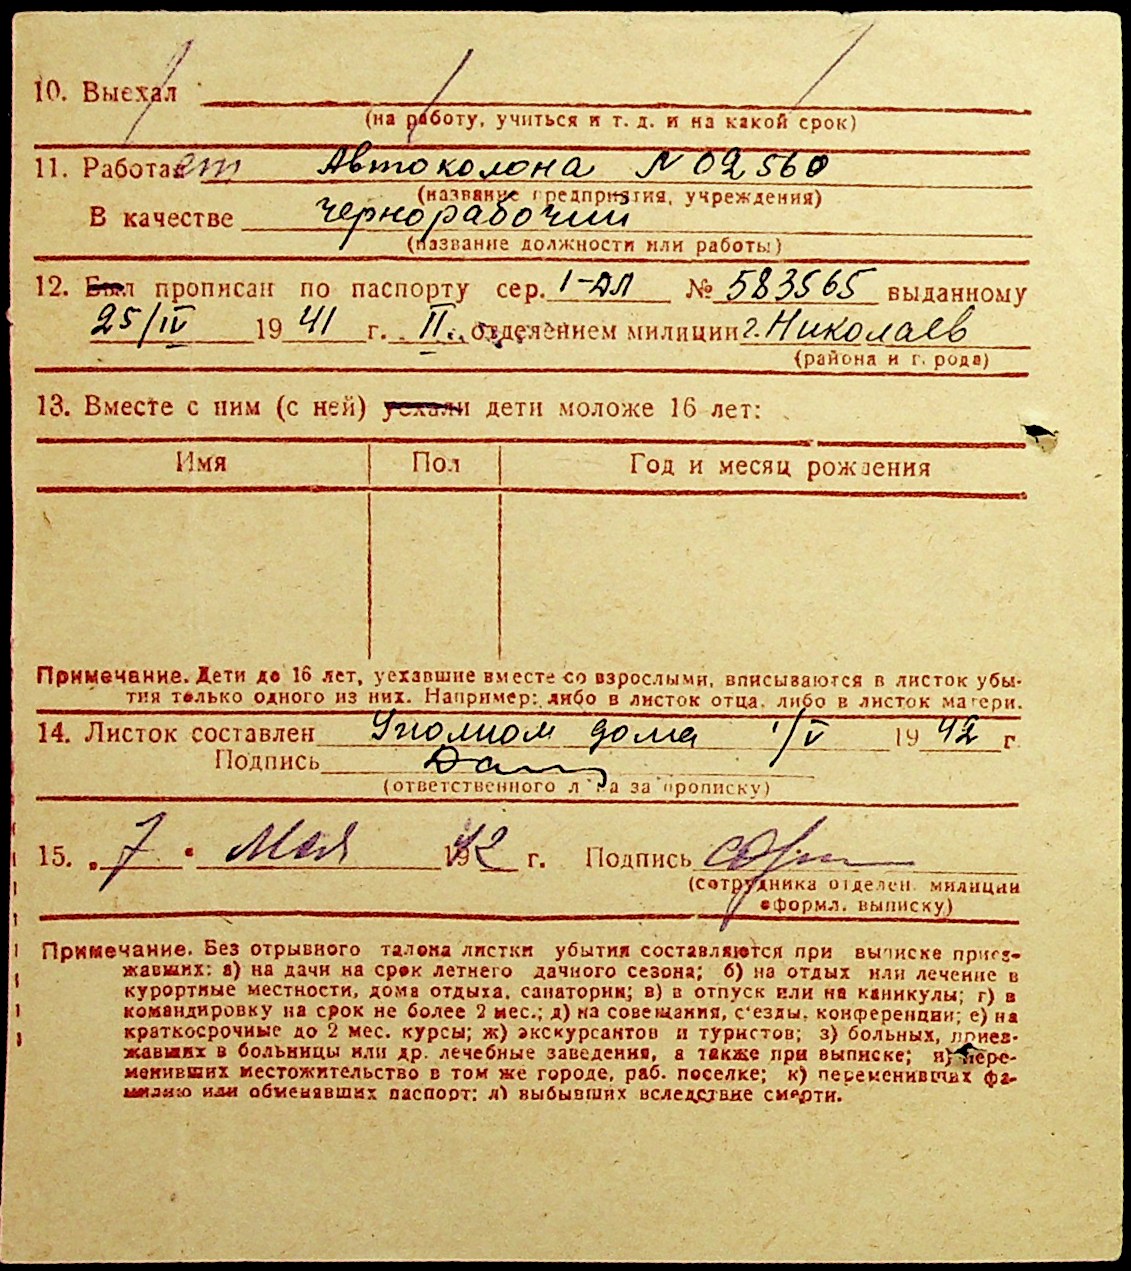 10. Выехал
(на работу, учиться и т. д. и на какой срок)
11. Работает Автоколона N 02560
(название предприятия, учреждения)
В качестве чернорабочий
(название должности или работы)
12. Был прописан по паспорту сер. I-АЛ № 583565 выданному
25/IV 1941 г. II. отделением милиции г. Николаев
(района и города)
13. Вместе с ним (с ней) уехали дети моложе 16 лет:
Имя Пол Год и месяц рождения
Примечание. Дети до 16 лет, уехавшие вместе со взрослыми, вписываются в листок убы-
тия только одного из них. Например: либо в листок отца, либо в листок матери.
14. Листок составлен Уполном дома 1/V 1942 г
Подпись
(ответственного лица за прописку)
15. „7“ Мая 1942 г. Подпись
(сотрудника отделен. милиции
оформл. выписку)
Примечание. Без отрывного талона листки убытия составляются при выписке приез-
жавших: а) на дачи на срок летнего дачного сезона; б) на отдых или лечение в
курортные местности, дома отдыха, санатории; в) в отпуск или на каникулы; г) в
командировку на срок не более 2 мес.; д) на совещания, с'езды, конференции; е) на
краткосрочные до 2 мес. курсы; ж) экскурсантов и туристов; з) больных, приез-
жавших в больницы или др. лечебные заведения, а также при выписке; и) пере-
менивших местожительство в том же городе, раб. поселке; к) переменивших фа-
милию или обменявших паспорт; л) выбывших вследствие смерти.